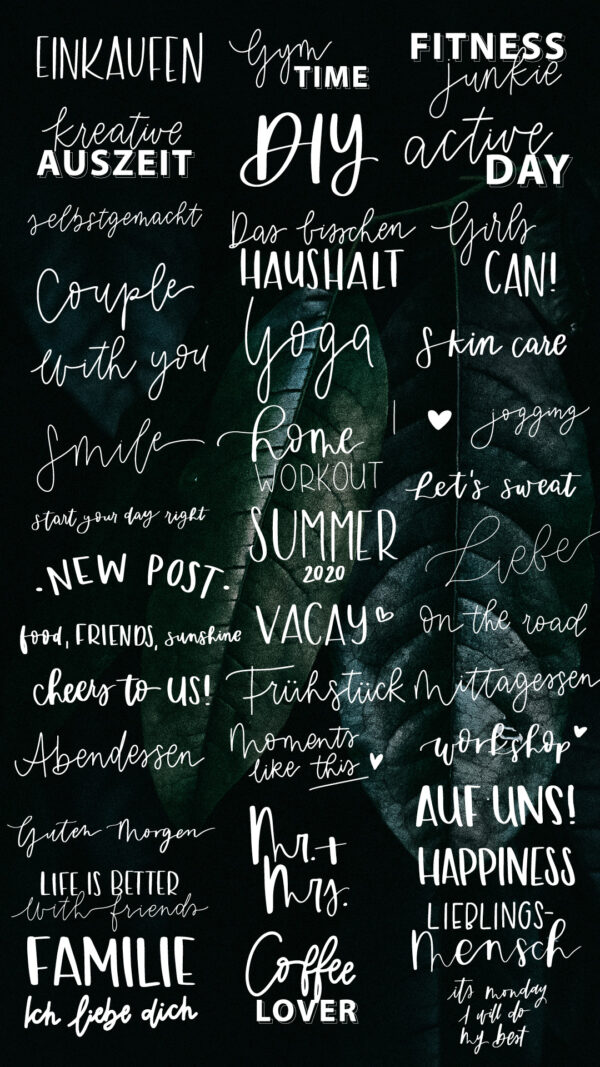 EINKAUFEN
Gym
TIME
FITNESS
junkie
kreative
AUSZEIT
DIY
active
DAY
selbstgemacht
Das bisschen
HAUSHALT
Girls
CAN!
Couple
with you
Yoga
Skin care
Smile
home
WORKOUT
jogging
Let's sweat
start your day right
SUMMER
2020
Liebe
•NEW POST•
VACAY
on the road
food, FRIENDS, sunshine
cheers to US!
Frühstück
Mittagessen
Abendessen
Moments
like this
workshop
AUF UNS!
Guten Morgen
Mr.+
Mrs.
HAPPINESS
LIFE IS BETTER
with friends
LIEBLINGS-
Mensch
FAMILIE
Ich liebe dich
Coffee
LOVER
it's monday
I will do
my best